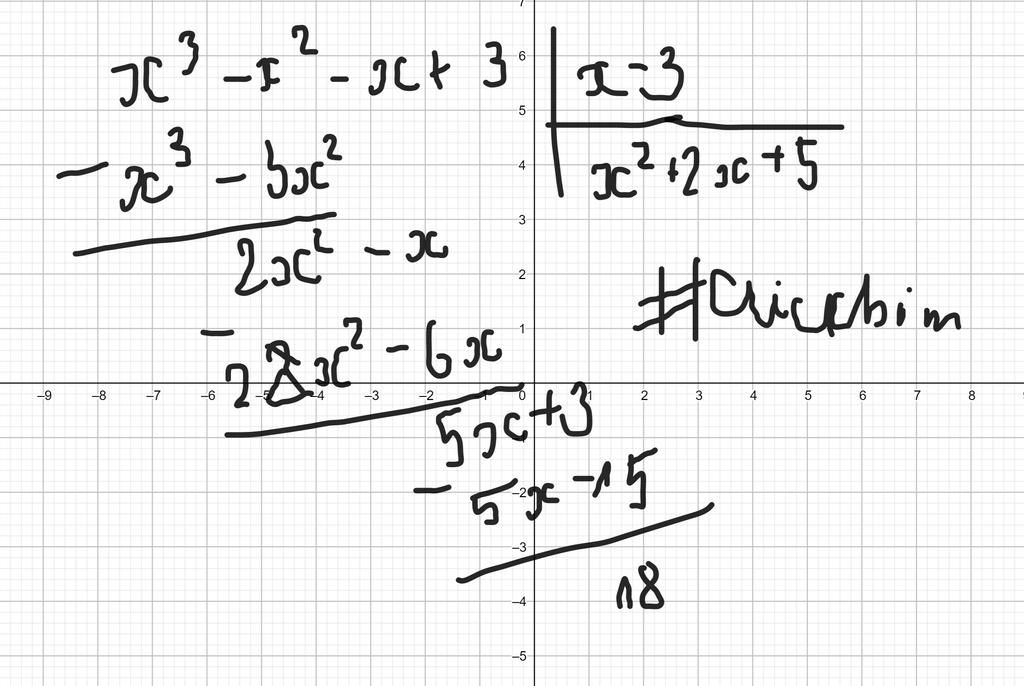 x³ - x² - x + 3 | x - 3
- x³ - 3x² | x² + 2x + 5
2x² - x
- 2x² - 6x
5x + 3
- 5x - 15
18
7
6
5
4
3
2
1
-9 -8 -7 -6 -5 -4 -3 -2 -1 0 1 2 3 4 5 6 7 8
-2
-3
-4
-5